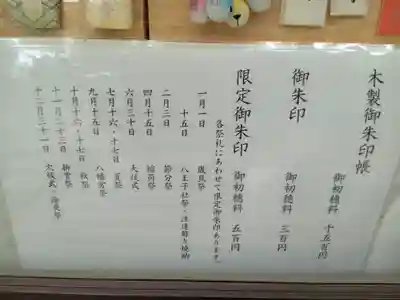 木製御朱印帳
御初穂料 千五百円
御朱印
御初穂料 三百円
限定御朱印
御初穂料 五百円
各祭礼にあわせて限定御朱印あります。
一月一日 歳旦祭
十五日 八王子社祭・注連飾り焼納
二月三日 節分祭
四月十五日 稲荷祭
六月三十日 大祓式
七月十六・十七日 夏祭
九月十五日 八幡宮祭
十月十六・十七日 秋祭
十一月二十三日 新嘗祭
十二月三十一日 大祓式・除夜祭